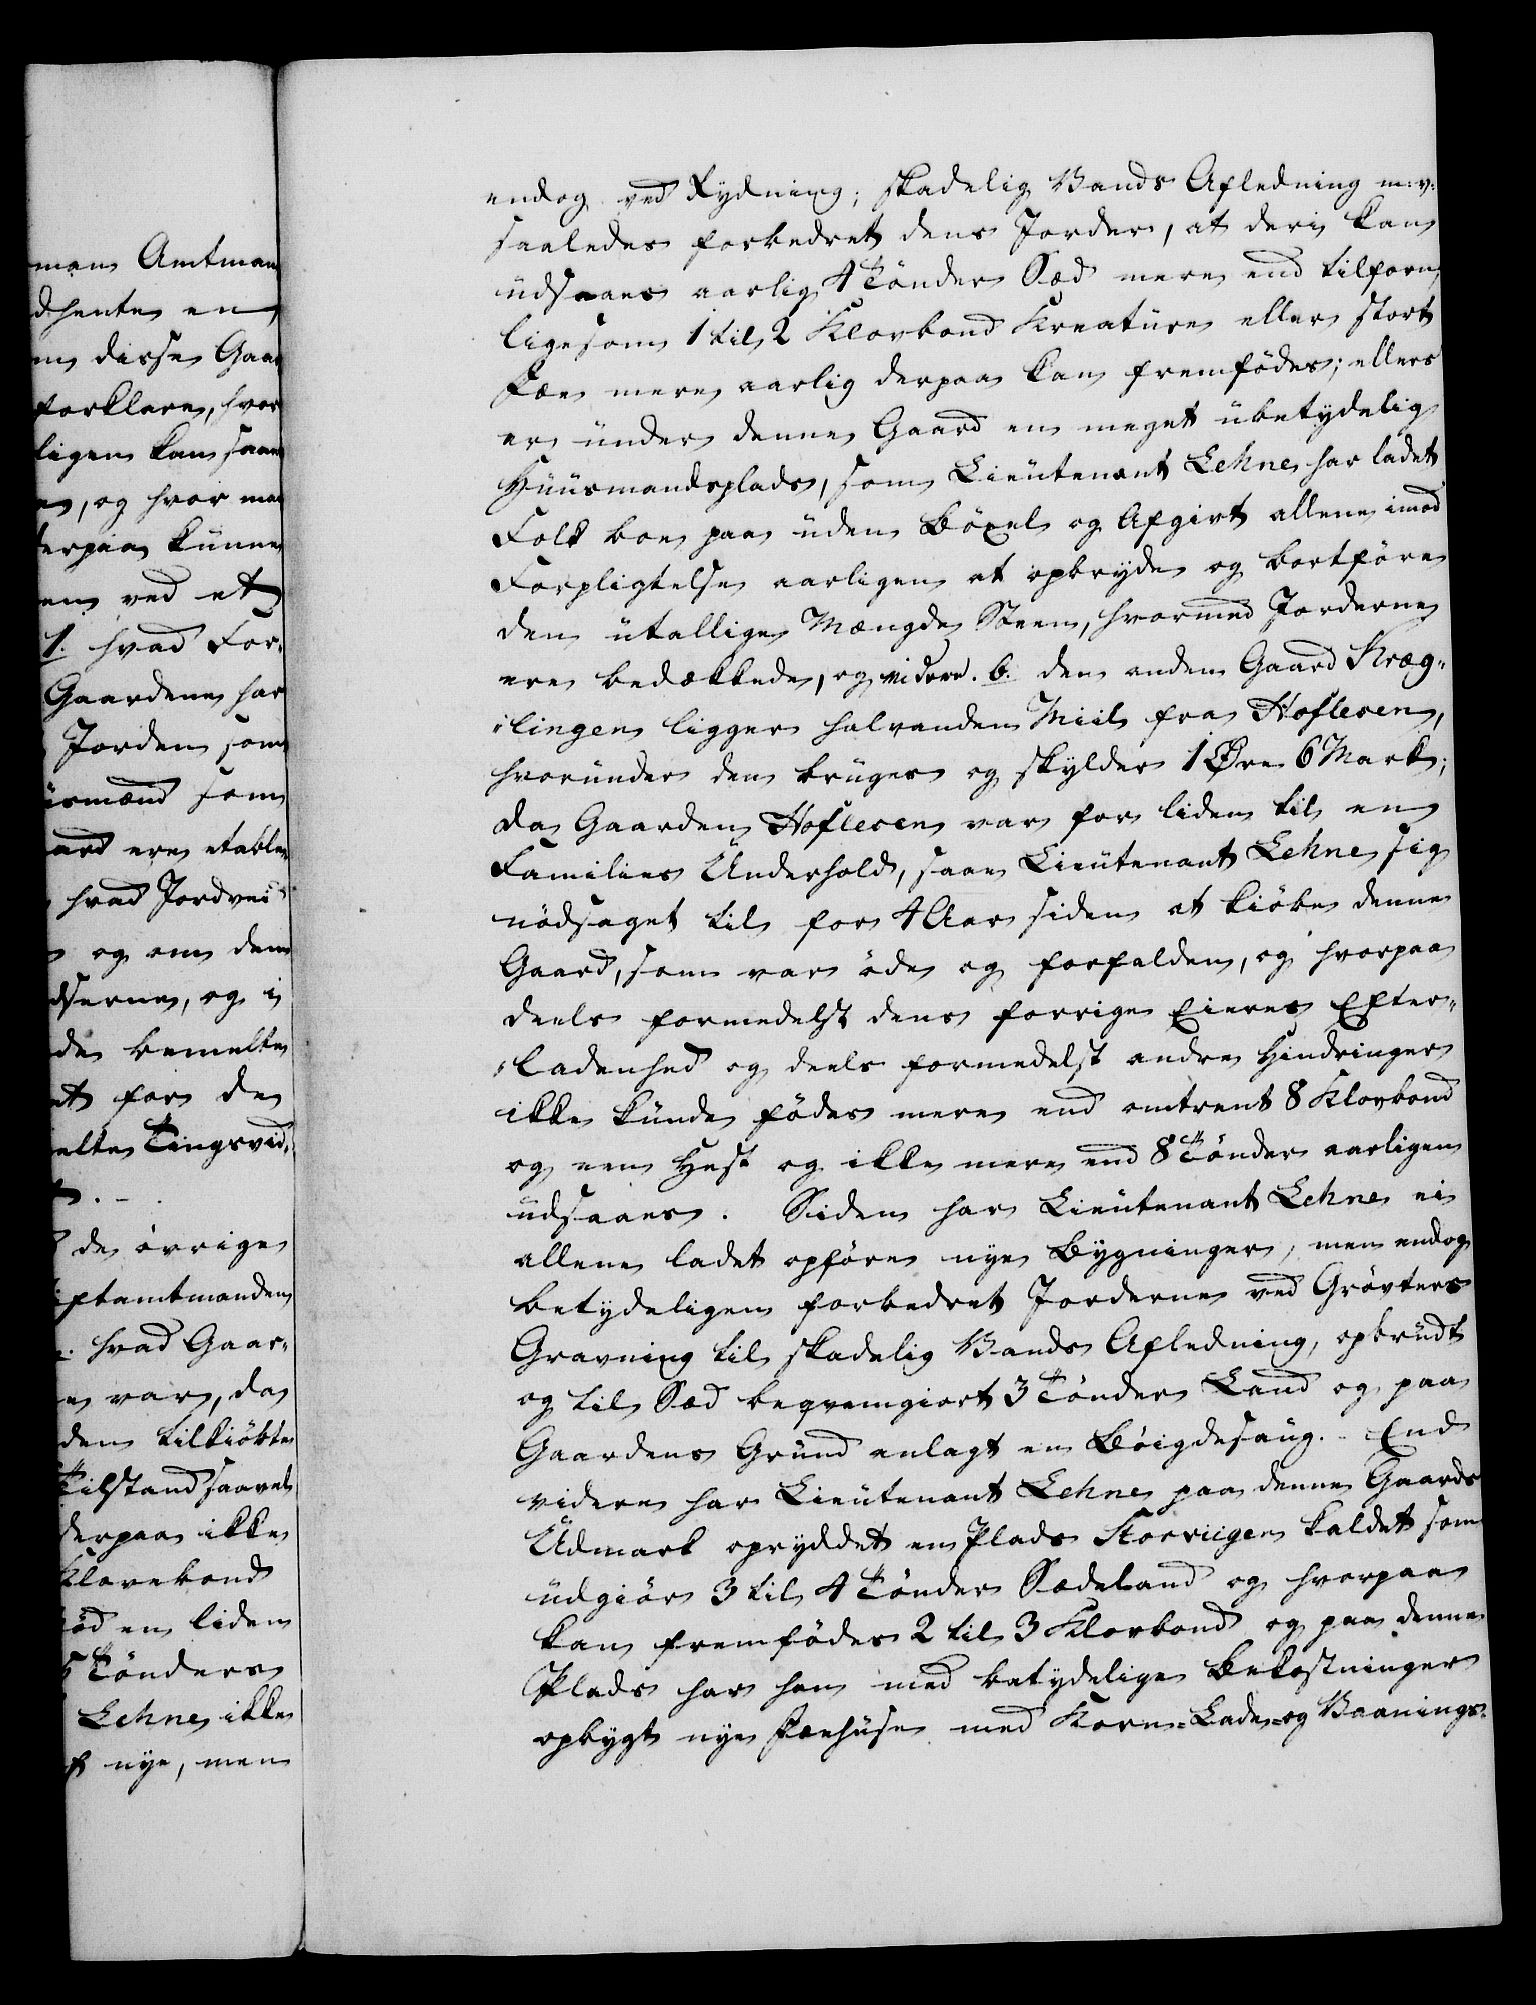 man Amtman
dhente en
en disse Gaar
forklare, hvor
ligen kan saae
en, og hvor man
derpaa kunne
en ved et
1. hvad For-
Gaardene har
Jorden som
usmænd som
aard ere etable-
hvad Jordvei
og om den
dserne, og i
de bemelte
et for de
elte Tingsvid-
t. -
de øvrige
iftamtmanden
. hvad Gaar-
n var, da
den tilkiøbte
Tilstand saavel
derpaa ikke
Klovebond
ød en liden
5 Tønders
Lehne ikke
t nye, men
endog ved Rydning, skadelig Vands Afledning m: v:
saaledes forbedret dens Jorder, at deri kan
udsaaes aarlig 4 Tønder Sæd mere end tilforn,
ligesom 1 til 2 Klovbond Kreature eller stort
Fæe mere aarlig derpaa kan fremfødes; ellers
er under denne Gaard en meget ubetydelig
Huusmandsplads, som Lieutenant Lehne har ladet
Folk boe paa uden Bøxel og Afgivt allene imod
Forpligtelse aarligen at opbryde og bortføre
den utallige Mængde Steen, hvormed Jorderne
ere bedækkede, og videre. b. den anden Gaard Kræg-
lingen ligger halvanden Miil fra Hofleren,
hvorunder den bruges og skylder 1 Øre 6 Mark;
da Gaarden Hofleren var for liden til en
Families Underhold, saae Lieutenant Lehne sig
nødsaget til for 4 Aar siden at kiøbe denne
Gaard, som var øde og forfalden, og hvorpaa
deels formedelst dens forrige Eieres Efter-
ladenhed og deels formedelst andre Hindringer
ikke kunde fødes mere end omtrent 8 Klovbond
og een Hest og ikke mere end 8 Tønder aarligen
udsaaes. Siden har Lieutenant Lehne ei
allene ladet opføre nye Bygninger, men endog
betydeligen forbedret Jorderne ved Grøvters
Gravning til skadelig Vands Afledning, opbrudt
og til Sæd beqvemgiort 3 Tønder Land og paa
Gaardens Grund anlagt en Bøigdesaug. End
videre har Lieutenant Lehne paa denne Gaards
Udmark opryddet en Plads Storviigen kaldet som
udgiør 3 til 4 Tønder Sædeland og hvorpaa
kan fremfødes 2 til 3 Klovbond og paa denne
Plads har han med betydelige Bekostninger
opbygt nye Fæehuse med Korn-Lade og Vaanings-